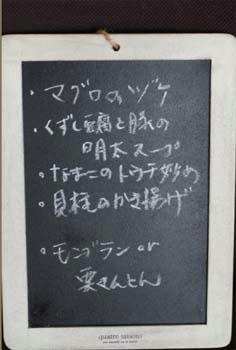 ・マグロのヅケ
・くずし豆腐と豚の
明太スープ
・なまこのトウチ炒め
・貝柱のかき揚げ
・モンブラン or
栗きんとん
quatre saisons